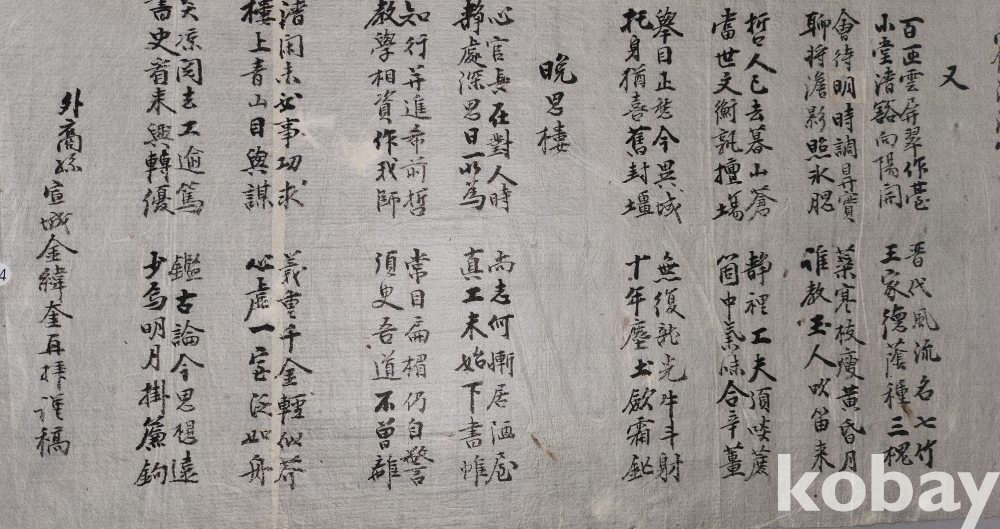 又
百匝雲屏翠作 晋代風流名七竹
小堂渚豁向陽開 王家德蔭種三槐
會待明時調鼎實 葉寒枝瘦黄昏月
聊將澹影照氷腮 誰教玉人吹笛来
哲人已去暮山蒼 静裡工夫須啖蔗
當世文衡孰擅場 箇中氣味合辛薑
擧目正愁今異域 無復龍光牛斗射
托身猶喜舊封壃 十年塵土歛霜鋩
晩思樓
心官真在對人時 尚志何慚居陋屋
静處深思日所爲 真工未始下書帷
知行并進希前哲 常目扁楣仍自警
教學相資作我師 須臾吾道不曾離
渚閑未必事功求 義重千金輕似芥
樓上青山目與謀 心虛一室泛如舟
炎凉閱去工逾篤 鑑古論今思想遠
書史看来興轉優 少焉明月掛簾鉤
外裔孫宣城金緯奎再拜謹稿
4
kobay